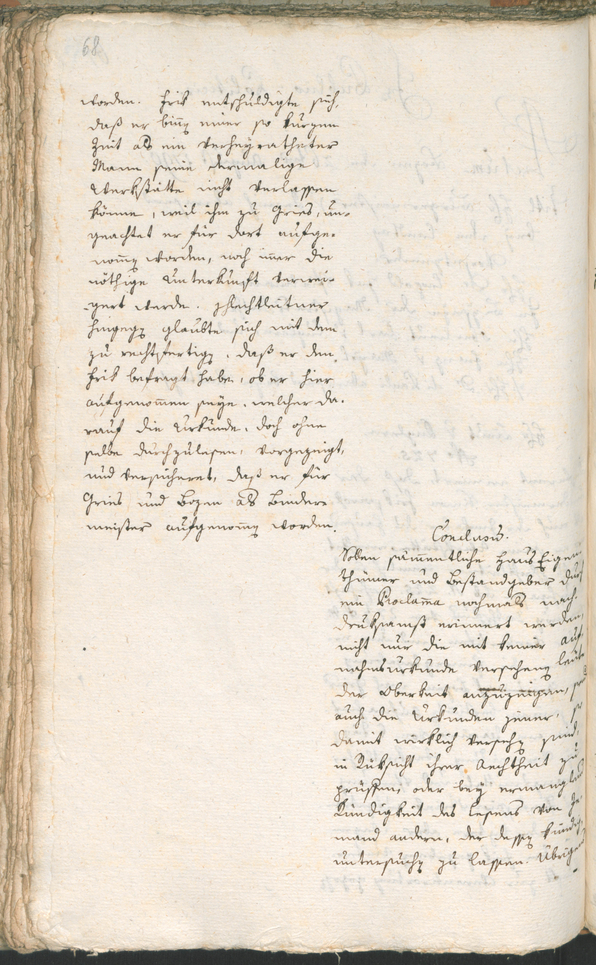 68
worden. Frik entschuldigte sich,
daß er binnen einer so kurzen
Zeit als ein verheyratheter
Mann seine dermalige
Werkstätte nicht verlassen
könne, weil ihm zu Gries, un-
geachtet er für dort aufge-
nommen worden, noch immer die
nöthige Unterkunft verwei-
gert werde.
hingegen glaubte sich mit dem
zu rechtfertigen, daß er den
Frik befragt habe, ob er hier
aufgenommen seye, welcher da-
rauf die Urkunde, doch ohne
selbe durchzulesen, vorgezeigt,
und versicheret, daß er für
Gries und Bozen als Binder-
meister aufgenommen worden.
Conclusum.
Sollen sämmentliche HausEigen-
thümer und Bestandgeber durch
ein Proclama nochmals nach-
druksamst erinnert werden,
nicht nur die mit keiner Auf-
nahmsurkunde versehenen Leute
der Oberkeit anzuzeigen,
auch die Urkunden jener, so
damit wirklich versehen sind,
in Rüksicht ihrer Aechtheit zu
prüffen, oder bey ermanglender
Kündigkeit des Lesens von je-
mand andern, der dessen kundig,
untersuchen zu lassen. Übrigens